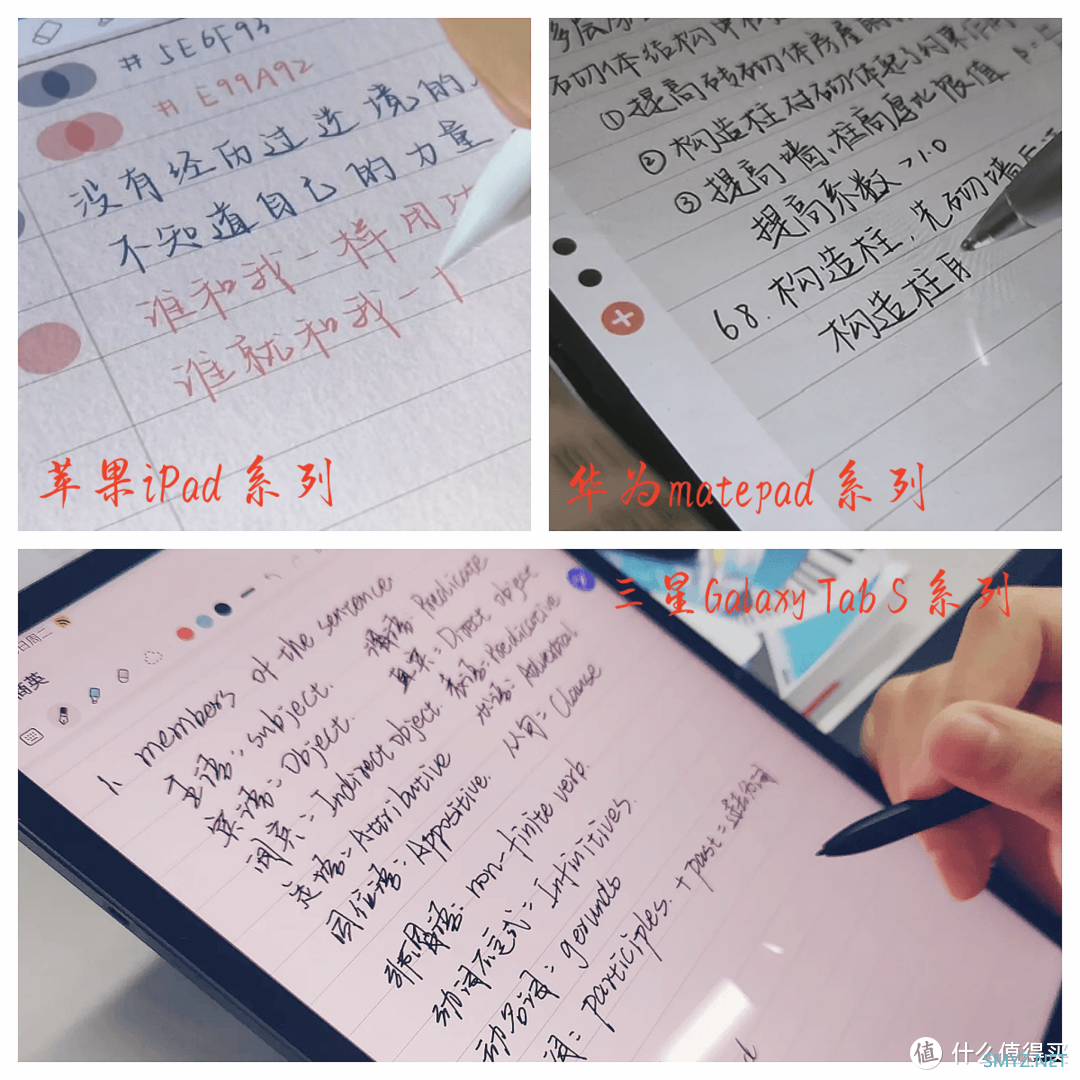 # 5E6F93
# E99A92
没有经历过逆境的人
不知道自己的力量
谁和我一样用功
谁就和我一
苹果iPad系列
砖砌体结构中
①提高砖砌体房屋
②构造柱对砌体起了约束作用
③提高墙、柱高厚比限值
提高系数>1.0
68.构造柱,先砌墙后
构造柱身
华为matepad系列
三星Galaxy Tab S系列
日周二
商英
1. members of the sentence
主语:subject.
谓语:Predicate
宾语=Object.
直宾=Direct object
间宾=Indirect object.
表语=Predicative
定语=Attributive
状语=Adverbial
同位语:Appositive.
从句=Clause
非谓语:non-finite verb.
动词不定式=Infinitives.
动名词=gerunds
词:participles.+past=过去分词
值 什么值得买
SMYZ.NET